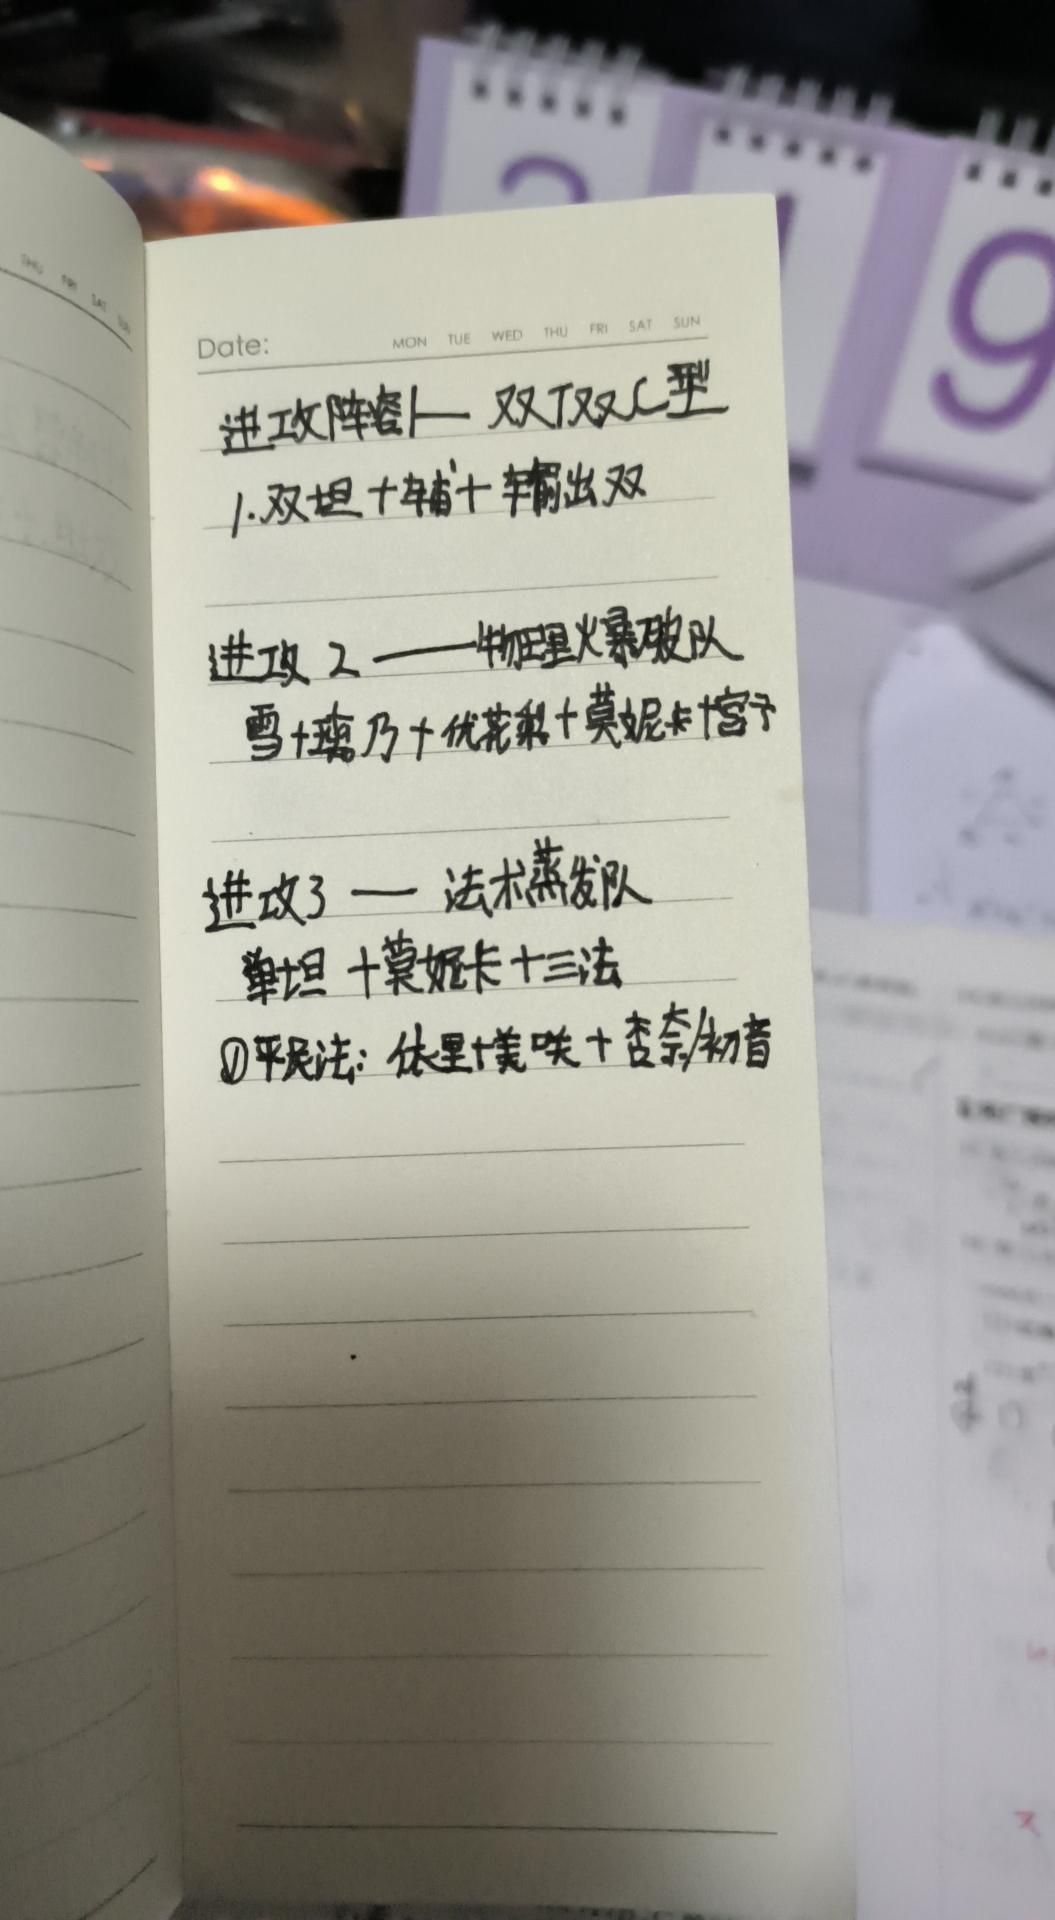 THU FRI SAT SUN
Date: MON TUE WED THU FRI SAT SUN
进攻阵容1— 双T双C型
1.双坦+辅+输出双
进攻2——物理火暴破队
雪+璃乃+优花梨+莫妮卡+宫子
进攻3 — 法术蒸发队
单坦+莫妮卡+三法
①平民法：依里+美咲+杏奈/初音
9